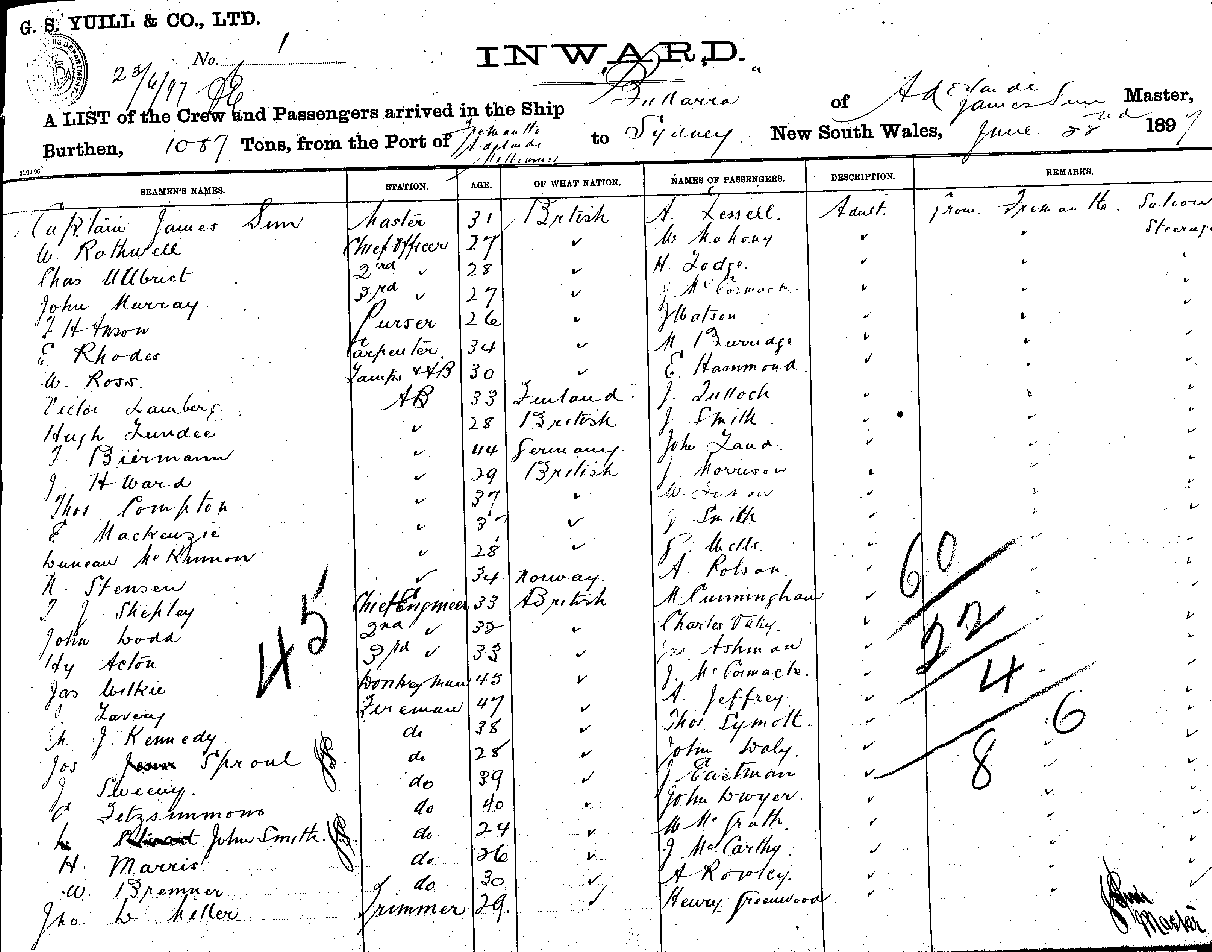 G. S. YUILL & CO., LTD.
No. 1
INWARD.
23/6/97
A LIST of the Crew and Passengers arrived in the Ship Bullarra of Adelaide James Sim Master,
Burthen, 1087 Tons, from the Port of Fremantle Adelaide Melbourne to Sydney New South Wales, June 22nd 1897
SEAMEN'S NAMES. STATION. AGE. OF WHAT NATION. NAMES OF PASSENGERS. DESCRIPTION. REMARKS.
Captain James Sim Master 31 British A. Lessell. Adult. From Fremantle Saloon
W. Rothwell Chief Officer 27 ✓ Mahony ✓ Steerage
Chas Ullbrict 2nd ✓ 28 ✓ H. Lodge. ✓
John Murray 3rd ✓ 27 ✓ J McCormack ✓
Purser 26 ✓ J Watson ✓
E Rhodes Carpenter 34 ✓ M Burridge ✓
W. Ross. Lamps & AB 30 ✓ E Hammond ✓
Victor Lamberg AB 33 Finland J. Tulloch ✓
Hugh Dundee ✓ 28 British J Smith ✓
F. Biermann ✓ 44 Germany John Land ✓
J. H Ward ✓ 29 British J Morrison
Thos Compton ✓ 37 ✓ W. ✓
E Mackenzie ✓ ✓ J Smith ✓
Duncan McKinnon ✓ 28 ✓ Wells. ✓
N. Stensen ✓ 34 Norway. A Rolson ✓
J Shepley Chief Engineer 33 British M Cunningham ✓
John Dodd 2nd ✓ 32 ✓ Charles ✓
Hy Acton 3rd ✓ 33 ✓ Jas Ashman ✓
Jas Wilkie Donkeyman 45 ✓ J. McCormack. ✓
Lavery Fireman 47 ✓ A. Jeffrey ✓
M. J. Kennedy do 38 Thos Symott ✓
Jos Sproul do 28 ✓ John Daly. ✓
J Sweeny. do 39 ✓ J Eastman ✓
P Fitzsimmons do 40 John Dwyer. ✓
John Smith. do 24 ✓ W McGrath. ✓
H. Marris do 26 ✓ J McCarthy. ✓
W. Bremner do 30 ✓ A Rowley. ✓
Jno. Miller Trimmer 29. ✓ Henry Greenwood ✓
45
60
22
4
86
Master